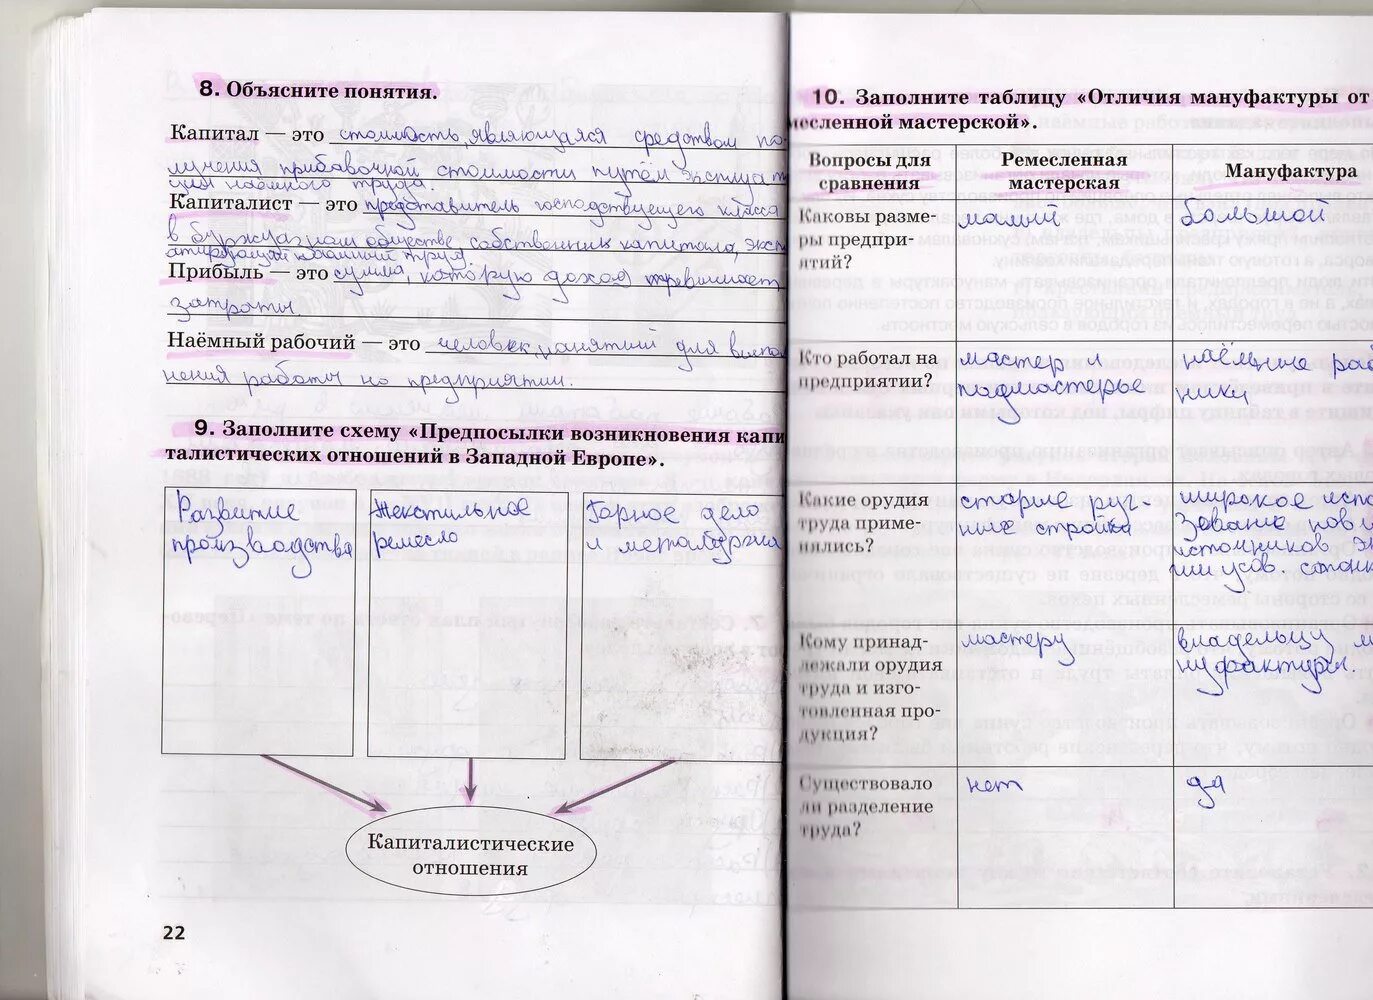 8. Объясните понятия.
Капитал — это стоимость, являющаяся средством по-
лучения прибавочной стоимости путём эксплуата
ции наёмного труда.
Капиталист — это представитель господствующего класса
в буржуазном обществе, собственник капитала, эксп
атирующий наёмный труд.
Прибыль — это сумма, которую доход превышает
затраты.
Наёмный рабочий — это человек, нанятий для выпол
нения работы на предприятии.
9. Заполните схему «Предпосылки возникновения капи
талистических отношений в Западной Европе».
Развитие
производства
Текстильное
ремесло
Горное дело
и металлургия
Капиталистические
отношения
22
10. Заполните таблицу «Отличия мануфактуры от
месленной мастерской».
Вопросы для
сравнения
Ремесленная
мастерская
Мануфактура
Каковы разме-
ры предпри-
ятий?
малий
большой
Кто работал на
предприятии?
мастер и
подмастерье
наёмние рабо
ники
Какие орудия
труда приме-
нялись?
старие руч-
ние станки
широкое испо
зование нових
источников эн
усов. станк
Кому принад-
лежали орудия
труда и изго-
товленная про-
дукция?
мастеру
владельцу м
нуфактуры.
Существовало
ли разделение
труда?
нет
да